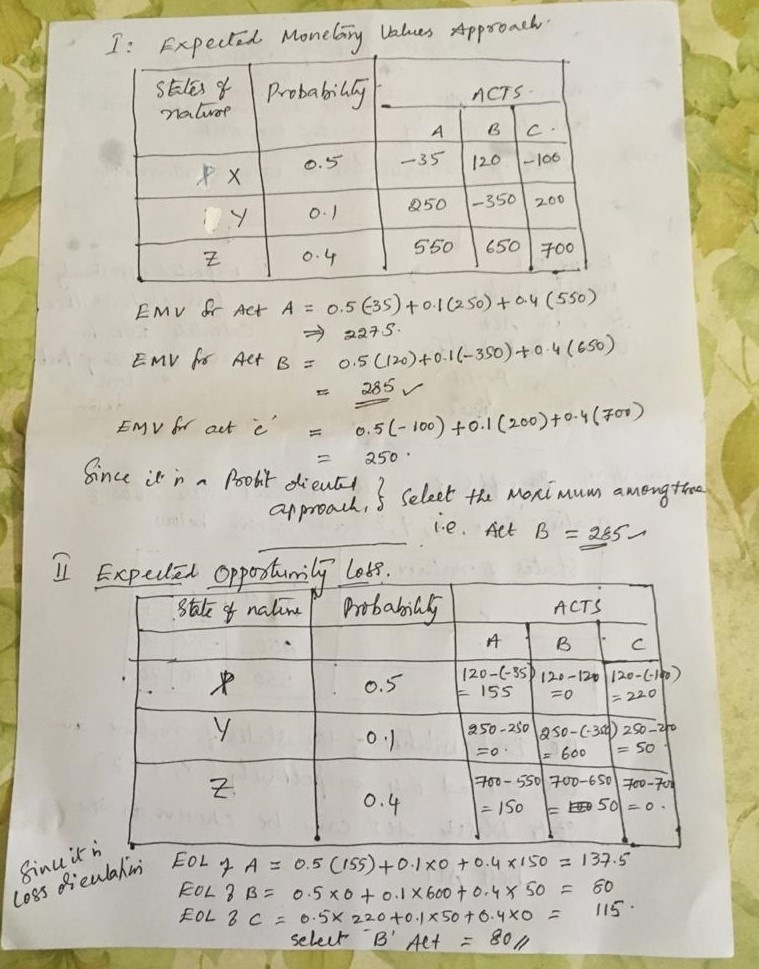 I: Expected Monetary Values Approach.
States of nature Probability ACTS
A B C.
X 0.5 -35 120 -100
Y 0.1 250 -350 200
Z 0.4 550 650 700
EMV for Act A = 0.5(-35)+0.1(250)+0.4(550)
⇒ 227.5.
EMV for Act B = 0.5(120)+0.1(-350)+0.4(650)
= 285 ✓
EMV for act 'c' = 0.5(-100)+0.1(200)+0.4(700)
= 250.
Since it is a Profit oriented approach, } Select the Maximum among three
i.e. Act B = 285
II Expected Opportunity Loss.
State of nature Probability ACTS
A B C
X 0.5 120-(-35) = 155 120-120 = 0 120-(-100) = 220
Y 0.1 250-250 = 0. 250-(-350) = 600 250-200 = 50
Z 0.4 700-550 = 150 700-650 = 50 700-700 = 0.
Since it is
Loss
EOL of A = 0.5(155)+0.1x0+0.4x150 = 137.5
EOL of B = 0.5x0+0.1x600+0.4x50 = 80
EOL of C = 0.5x220+0.1x50+0.4x0 = 115.
select 'B' Act = 80//